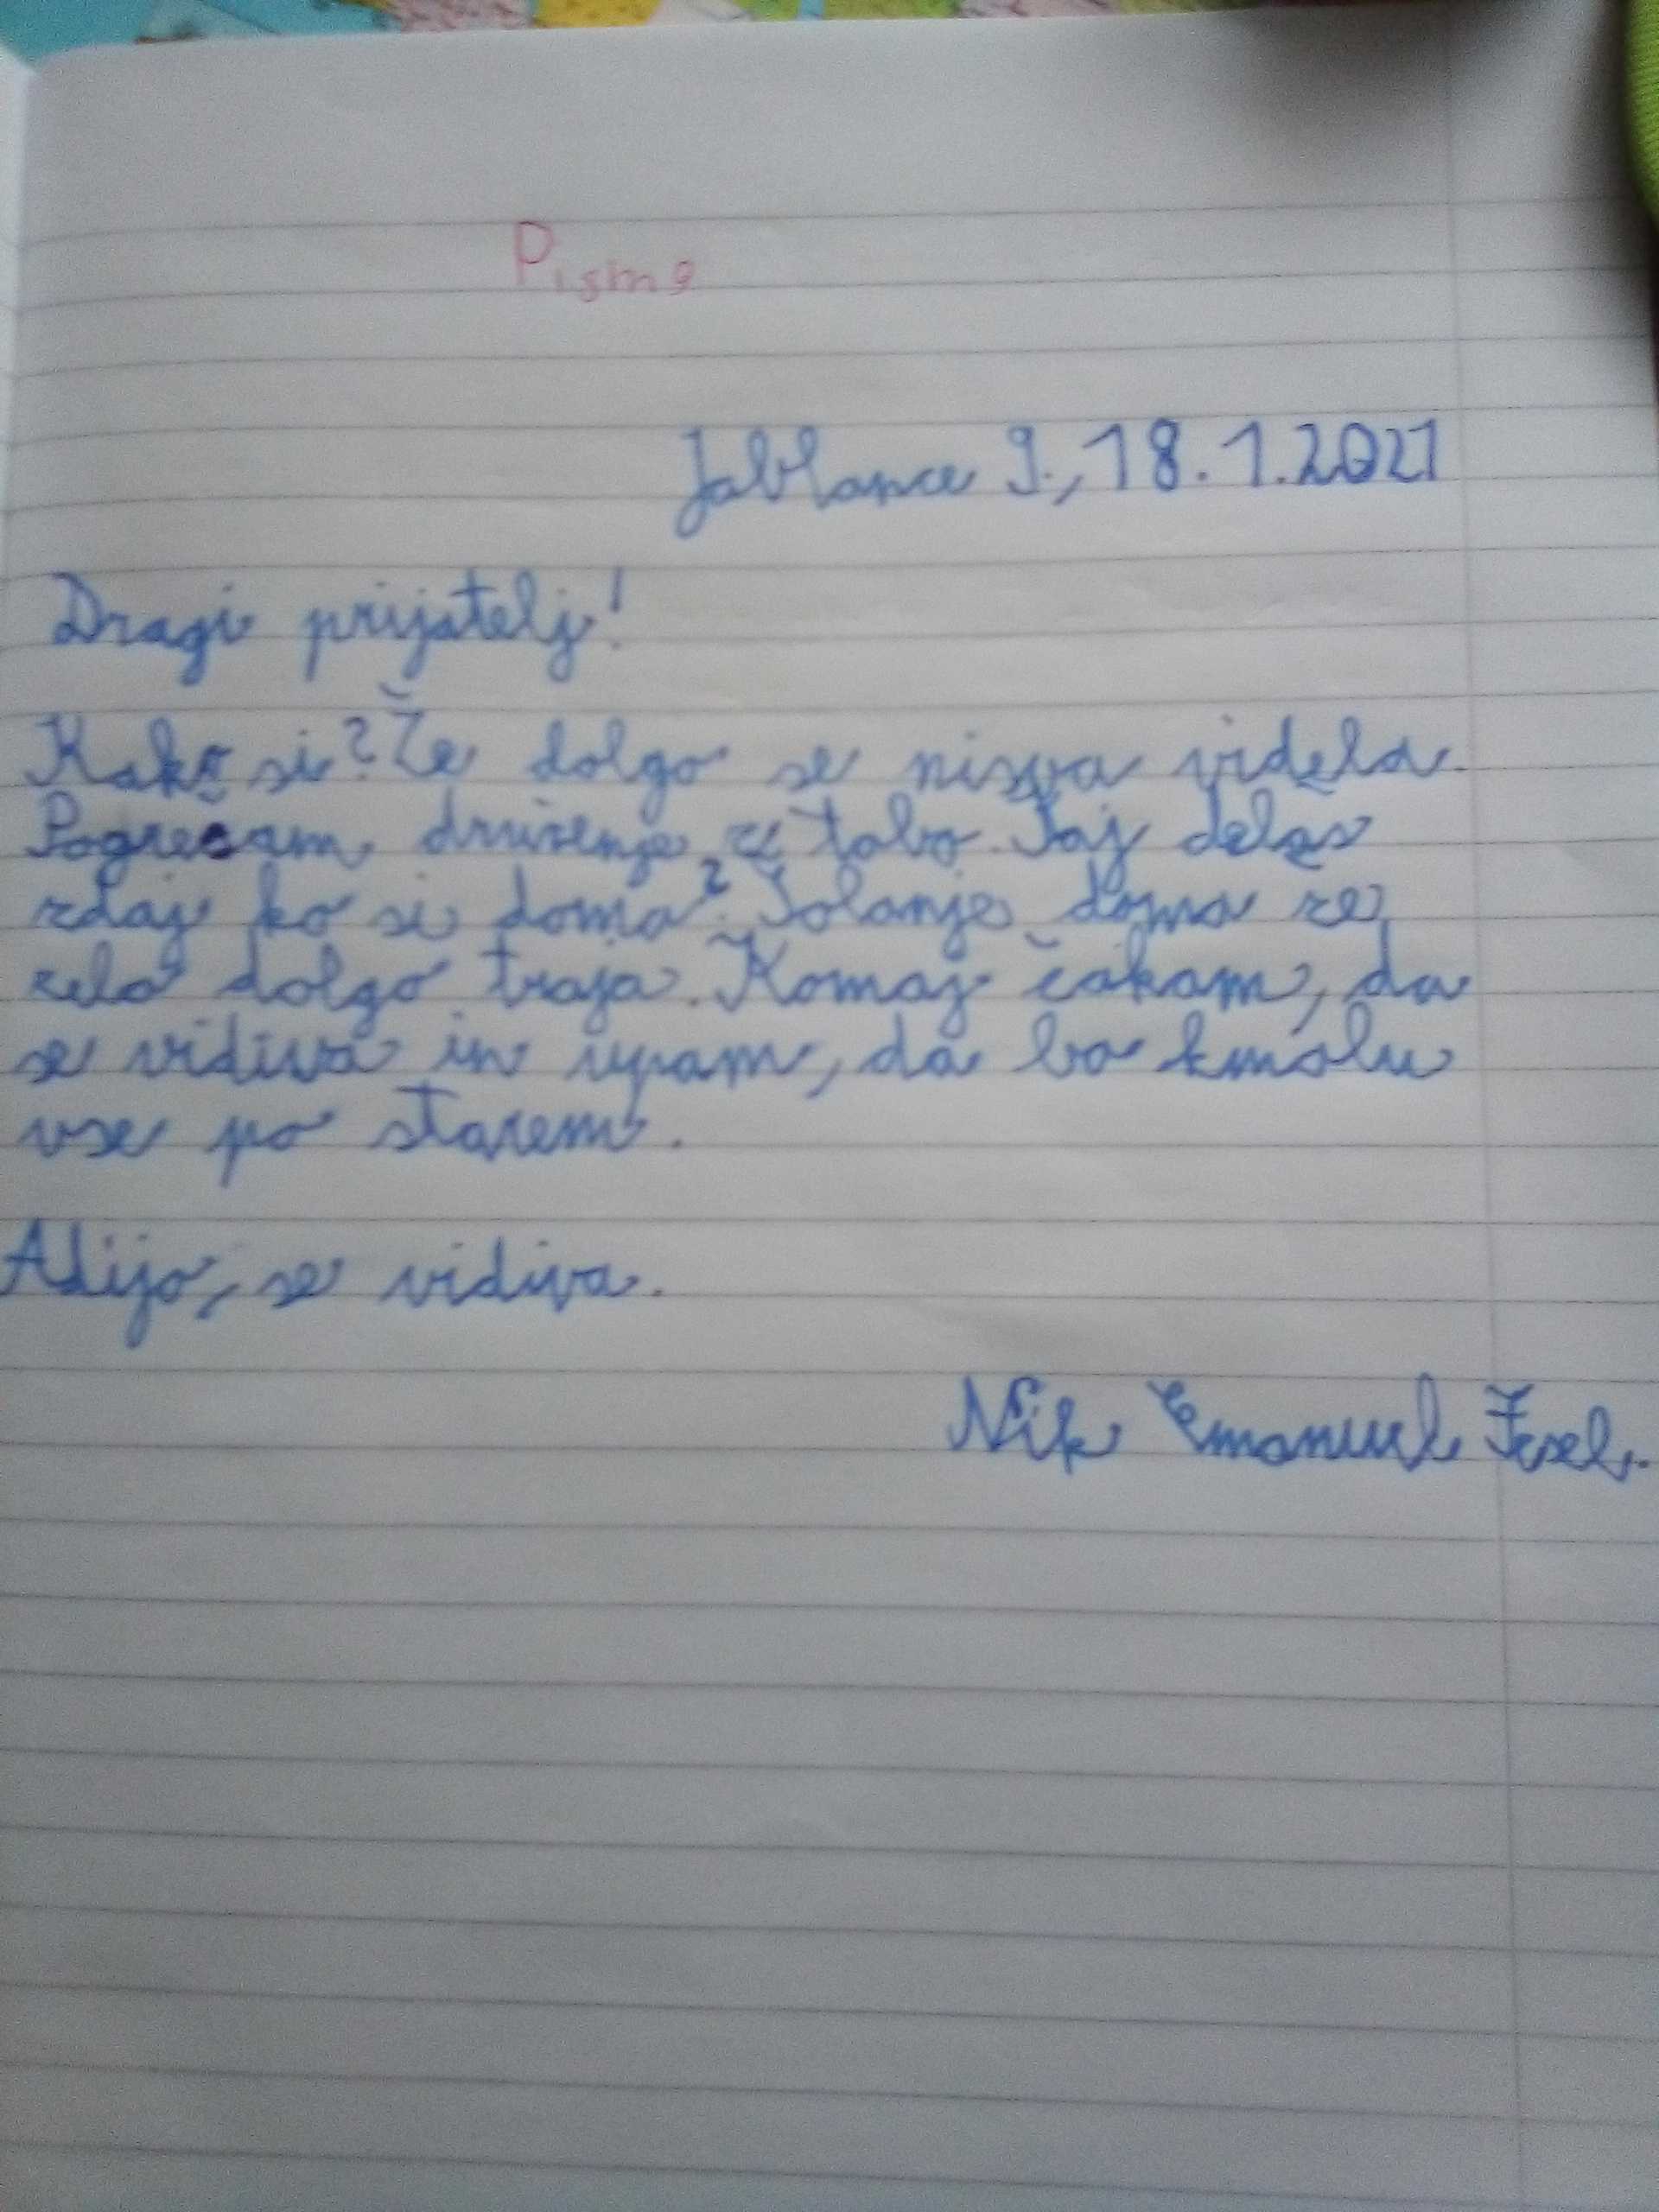 Pismo
Jablance 9., 18. 1. 2021
Dragi prijatelj!
Kako si? Že dolgo se nisva videla.
Pogrešam druženje s tabo. Kaj delaš
zdaj ko si doma? Šolanje doma že
zelo dolgo traja. Komaj čakam, da
se vidiva in upam, da bo kmalu
vse po starem.
Adijo, se vidiva.
Nik Emanuel